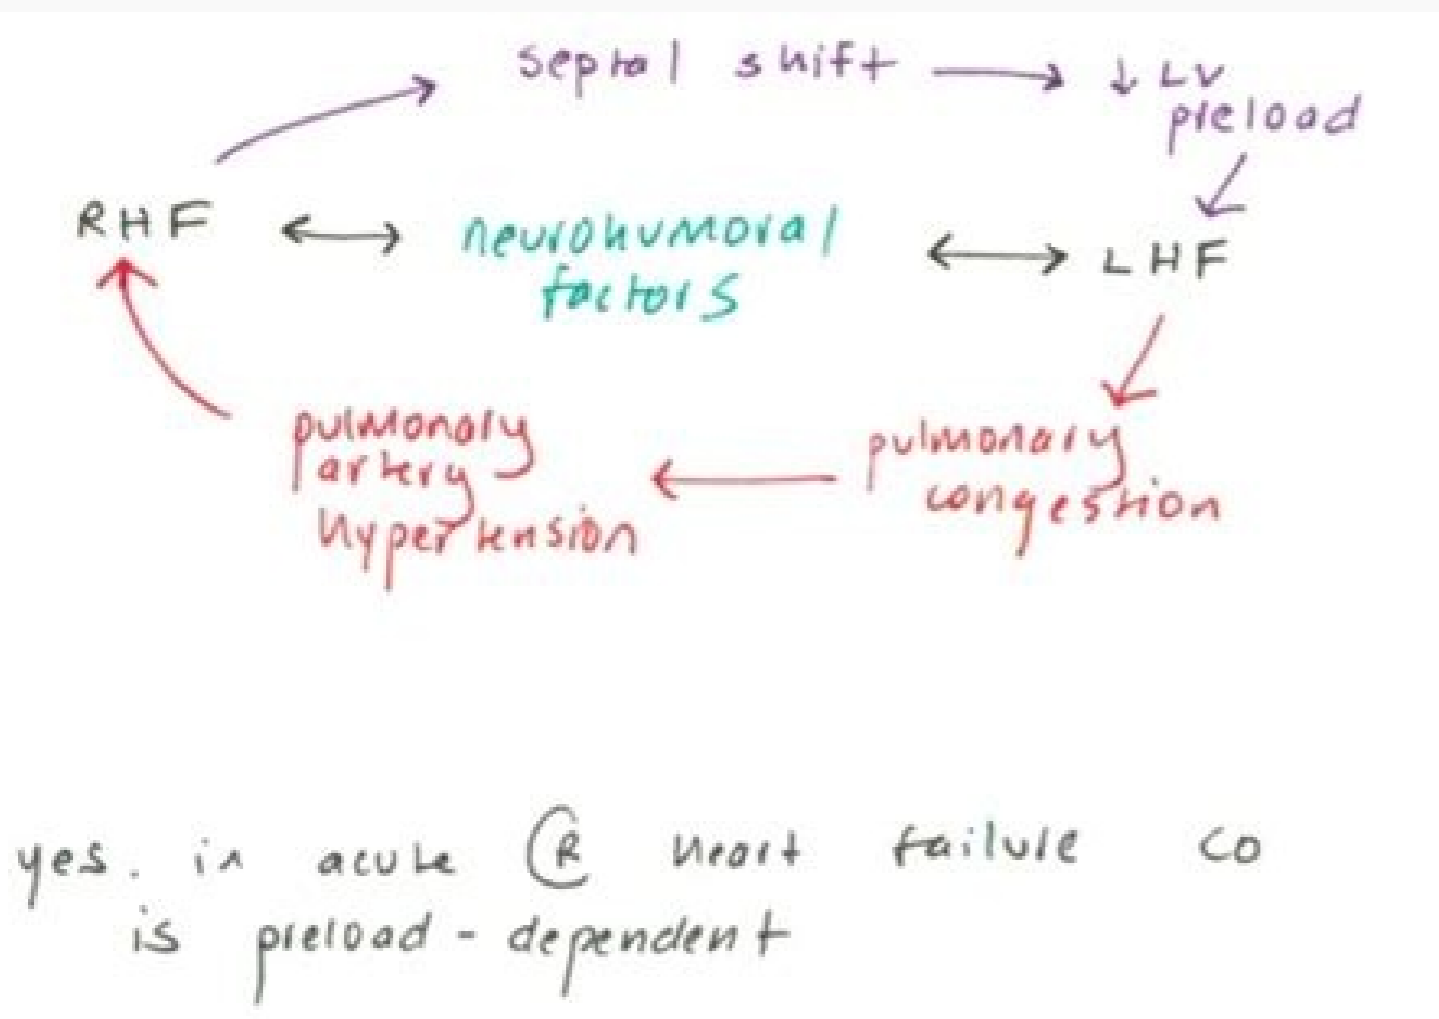 septal shift → ↓ LV
preload
RHF ↔ neurohumoral ↔ LHF
factors
pulmonary
artery
hypertension
← pulmonary
congestion
yes. in acute Ⓡ heart failure CO
is preload-dependent